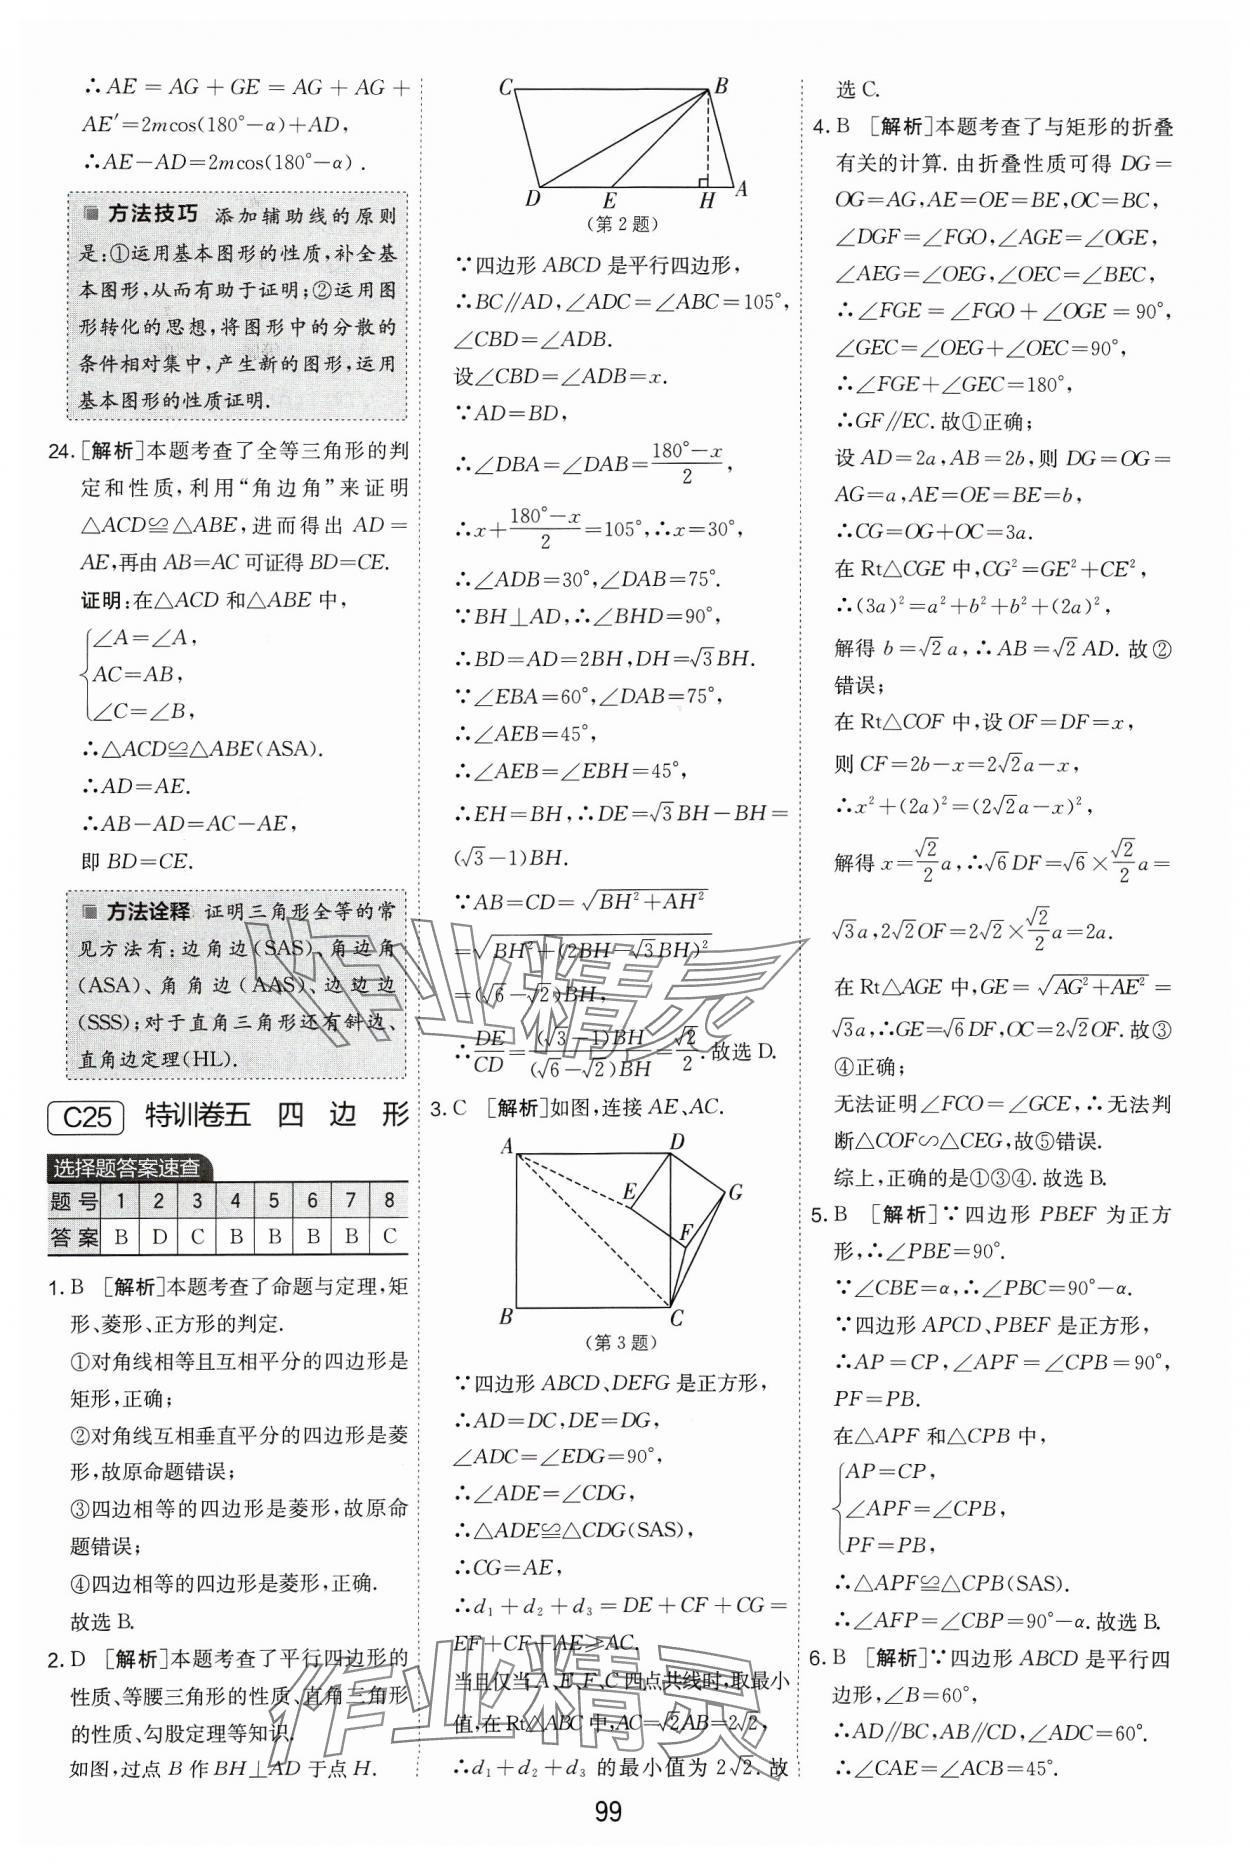 ∴AE = AG + GE = AG + AG +
AE′=2mcos(180°−α)+AD,
∴AE−AD=2mcos(180°−α).
方法技巧 添加辅助线的原则
是:①运用基本图形的性质,补全基
本图形,从而有助于证明;②运用图
形转化的思想,将图形中的分散的
条件相对集中,产生新的图形,运用
基本图形的性质证明.
24.[解析]本题考查了全等三角形的判
定和性质,利用“角边角”来证明
△ACD≌△ABE,进而得出 AD=
AE,再由 AB=AC 可证得 BD=CE.
证明:在△ACD 和△ABE 中,
∠A=∠A,
AC=AB,
∠C=∠B,
∴△ACD≌△ABE(ASA).
∴AD=AE.
∴AB−AD=AC−AE,
即 BD=CE.
方法诠释 证明三角形全等的常
见方法有:边角边(SAS)、角边角
(ASA)、角角边(AAS)、边边边
(SSS);对于直角三角形还有斜边、
直角边定理(HL).
C25 特训卷五 四 边 形
选择题答案速查
题号 1 2 3 4 5 6 7 8
答案 B D C B B B B C
1. B [解析]本题考查了命题与定理,矩
形、菱形、正方形的判定.
①对角线相等且互相平分的四边形是
矩形,正确;
②对角线互相垂直平分的四边形是菱
形,故原命题错误;
③四边相等的四边形是菱形,故原命
题错误;
④四边相等的四边形是菱形,正确.
故选 B.
2. D [解析]本题考查了平行四边形的
性质、等腰三角形的性质、直角三角形
的性质、勾股定理等知识.
如图,过点 B 作 BH⊥AD 于点 H.
C B
D E H A
(第 2 题)
∵四边形 ABCD 是平行四边形,
∴BC∥AD,∠ADC=∠ABC=105°,
∠CBD=∠ADB.
设∠CBD=∠ADB=x.
∵AD=BD,
∴∠DBA=∠DAB=(180°−x)/2,
∴x+(180°−x)/2=105°,∴x=30°,
∴∠ADB=30°,∠DAB=75°.
∵BH⊥AD,∴∠BHD=90°,
∴BD=AD=2BH,DH=√3BH.
∵∠EBA=60°,∠DAB=75°,
∴∠AEB=45°,
∴∠AEB=∠EBH=45°,
∴EH=BH,∴DE=√3BH−BH=
(√3−1)BH.
∵AB=CD=√(BH²+AH²)
=√(BH²+(2BH−√3BH)²)
=(√6−√2)BH,
∴DE/CD=(√3−1)BH/(√6−√2)BH=√2/2.故选 D.
3. C [解析]如图,连接 AE、AC.
A D
E G
F
B C
(第 3 题)
∵四边形 ABCD、DEFG 是正方形,
∴AD=DC,DE=DG,
∠ADC=∠EDG=90°,
∴∠ADE=∠CDG,
∴△ADE≌△CDG(SAS),
∴CG=AE,
∴d₁+d₂+d₃=DE+CF+CG=
EF+CF+AE≥AC.
当且仅当 A、E、F、C 四点共线时,取最小
值,在 Rt△ABC 中,AC=√2AB=2√2,
∴d₁+d₂+d₃ 的最小值为 2√2.故
选 C.
4. B [解析]本题考查了与矩形的折叠
有关的计算.由折叠性质可得 DG=
OG=AG,AE=OE=BE,OC=BC,
∠DGF=∠FGO,∠AGE=∠OGE,
∠AEG=∠OEG,∠OEC=∠BEC,
∴∠FGE=∠FGO+∠OGE=90°,
∠GEC=∠OEG+∠OEC=90°,
∴∠FGE+∠GEC=180°,
∴GF∥EC.故①正确;
设 AD=2a,AB=2b,则 DG=OG=
AG=a,AE=OE=BE=b,
∴CG=OG+OC=3a.
在 Rt△CGE 中,CG²=GE²+CE²,
∴(3a)²=a²+b²+b²+(2a)²,
解得 b=√2a,∴AB=√2AD.故②
错误;
在 Rt△COF 中,设 OF=DF=x,
则 CF=2b−x=2√2a−x,
∴x²+(2a)²=(2√2a−x)²,
解得 x=√2/2 a,∴√6DF=√6×√2/2 a=
√3a,2√2OF=2√2×√2/2 a=2a.
在 Rt△AGE 中,GE=√(AG²+AE²)=
√3a,∴GE=√6DF,OC=2√2OF.故③
④正确;
无法证明∠FCO=∠GCE,∴无法判
断△COF∽△CEG,故⑤错误.
综上,正确的是①③④.故选 B.
5. B [解析]∵四边形 PBEF 为正方
形,∴∠PBE=90°.
∵∠CBE=α,∴∠PBC=90°−α.
∵四边形 APCD、PBEF 是正方形,
∴AP=CP,∠APF=∠CPB=90°,
PF=PB.
在△APF 和△CPB 中,
AP=CP,
∠APF=∠CPB,
PF=PB,
∴△APF≌△CPB(SAS).
∴∠AFP=∠CBP=90°−α.故选 B.
6. B [解析]∵四边形 ABCD 是平行四
边形,∠B=60°,
∴AD∥BC,AB∥CD,∠ADC=60°.
∴∠CAE=∠ACB=45°.
99
作业精灵
作业精灵